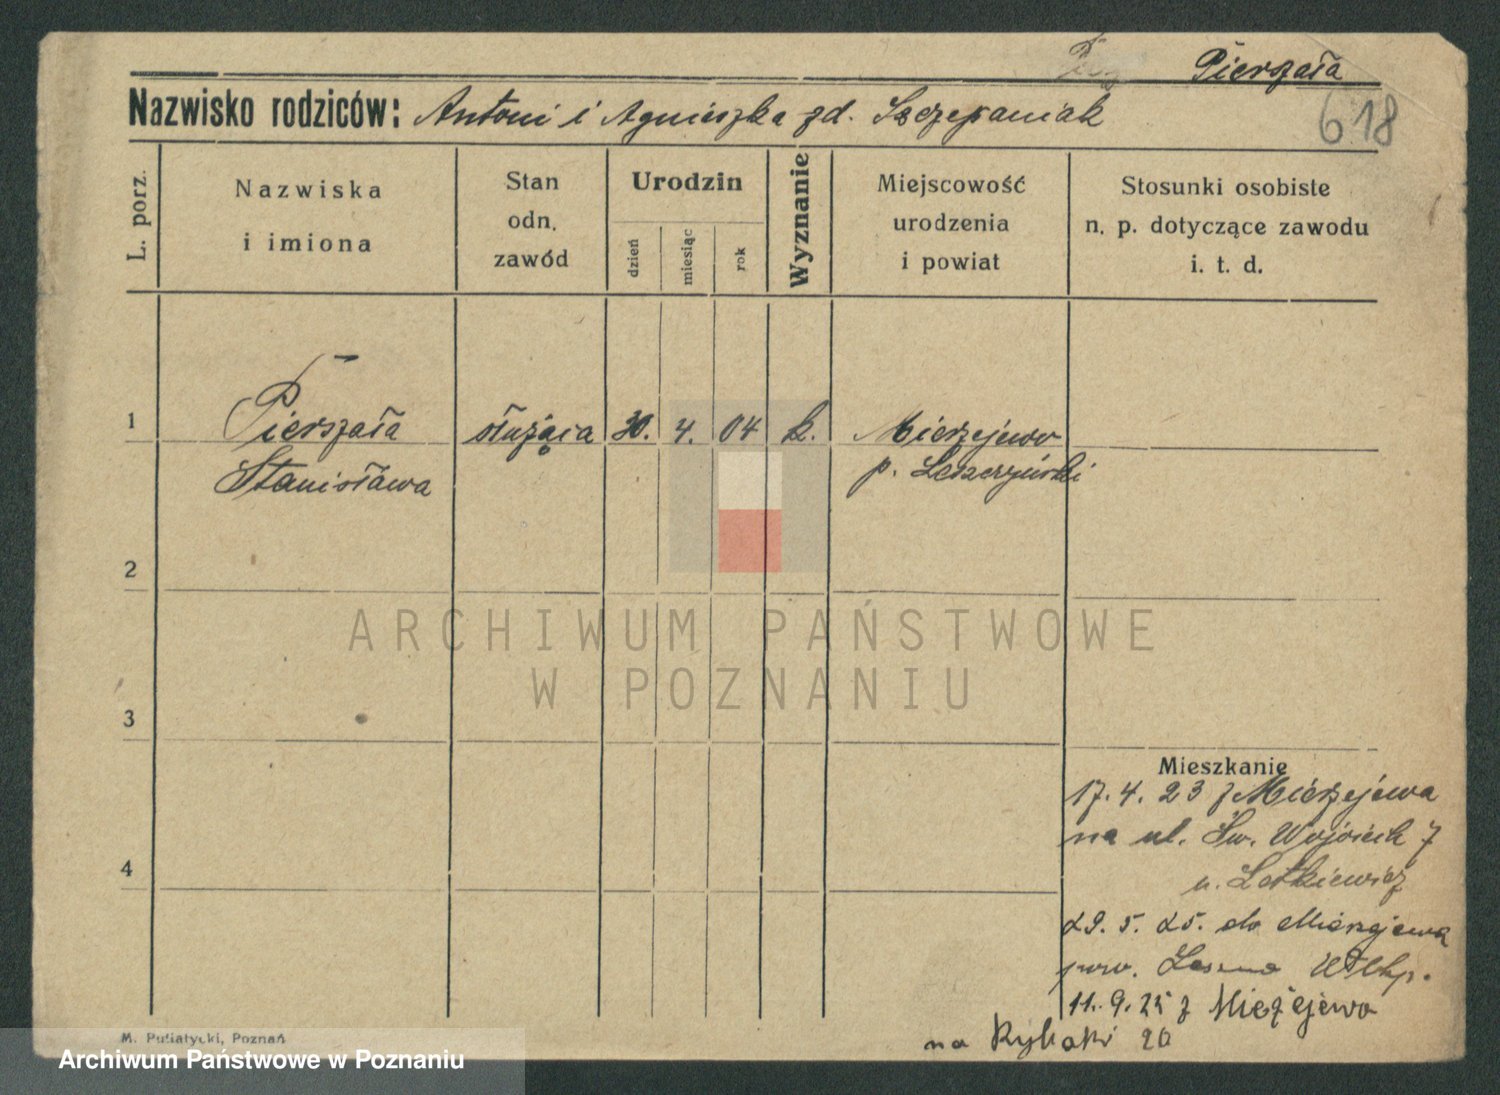 Pierszała
Nazwisko rodziców: Antoni i Agnieszka zd. Szczepaniak
618
L. porz.
Nazwiska
i imiona
Stan
odn.
zawód
Urodzin
dzień
miesiąc
rok
Wyznanie
Miejscowość
urodzenia
i powiat
Stosunki osobiste
n. p. dotyczące zawodu
i. t. d.
1 Pierszała służąca 30. 4. 04 k. Mierzejewo
Stanisława p. Leszczyński
2
3
4
Mieszkanie
17. 4. 23 z Mierzejewa
na ul. Św. Wojciech 7
u. Letkiewicz
29. 5. 25. do Mierzejewa
pow. Leszno Wlkp.
11. 9. 25 z Mierzejewo
na Rybaki 20
M. Putiatycki, Poznań
ARCHIWUM PAŃSTWOWE
W POZNANIU
Archiwum Państwowe w Poznaniu